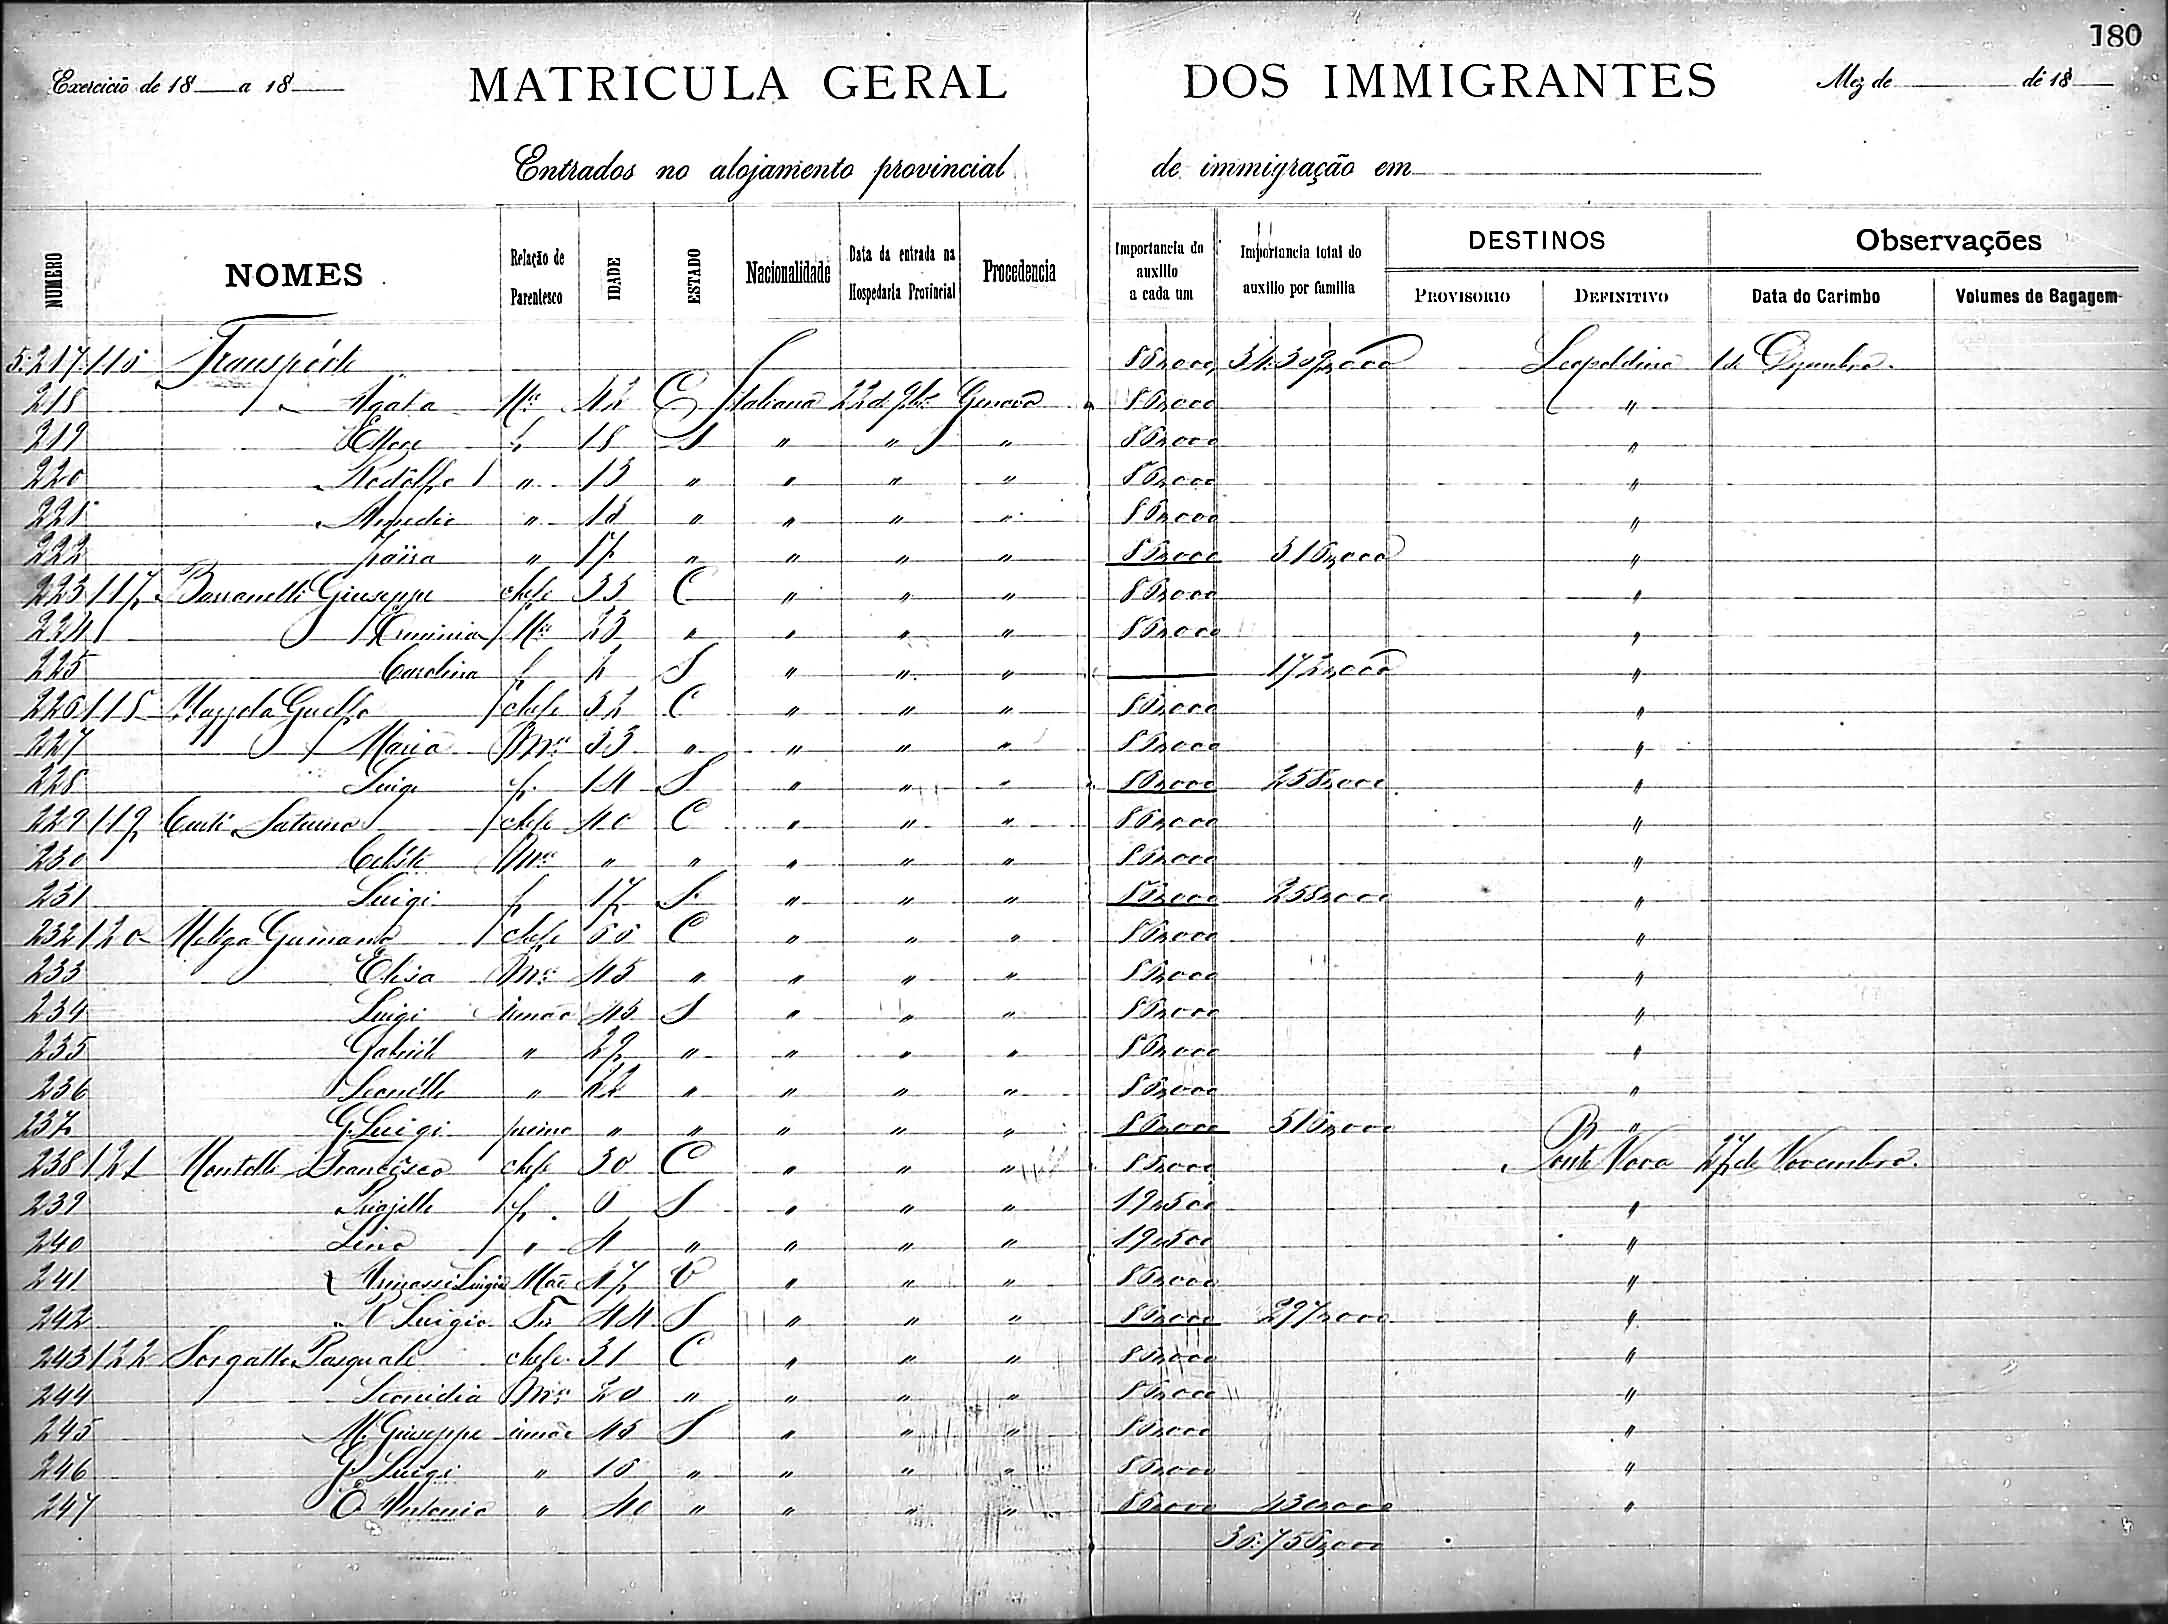 180
Exercicio de 18 a 18 MATRICULA GERAL DOS IMMIGRANTES Mez de de 18
Entrados no alojamento provincial de immigração em
NUMERO NOMES Relação de Parentesco IDADE ESTADO Nacionalidade Data da entrada na Hospedaria Provincial Procedencia Importancia do auxilio a cada um Importancia total do auxilio por familia DESTINOS PROVISORIO DEFINITIVO Observações Data do Carimbo Volumes de Bagagem
5.217 Transporte Leopoldina 1 de Dezembro
218 Agata 42 C Italiana 22 de 9bro Genova 86,000 "
219 Ettore f 18 S " " " 86,000 "
220 Rodolfo " 13 " " " " 86,000 "
221 " " " " " 86,000 "
222 " 17 " " " " 86,000 516,000 "
223 117 Giuseppe chefe 33 C " " " 86,000 "
224 Erminia Mer 23 " " " " 86,000 "
225 Carolina f 2 S " " " 172,000 "
226 118 Mazzola Guelfo chefe 32 C " " " 86,000 "
227 Maria Mer 33 " " " " 86,000 "
228 Luigi f. 14 S " " " 86,000 258,000 "
229 119 Curti Saturno chefe 40 C " " " 86,000 "
230 Celeste Mer " " " " " 86,000 "
231 Luigi f 17 S. " " " 86,000 258,000 "
232 120 chefe C " " " 86,000 "
233 Elisa Mer 45 " " " " 86,000 "
234 Luigi irmão 45 S " " " 86,000 "
235 Gabriele " 29 " " " " 86,000 "
236 " 22 " " " " 86,000 "
237 G. Luigi primo " " " " " 86,000 516,000 "
238 121 Montelli Francisco chefe 30 C " " " 86,000 Ponte Nova 27 de Novembro.
239 f. 6 S " " " 19,500 "
240 Lino " 4 " " " " 19,500 "
241 Luigia Mãe V " " " 86,000 "
242 Luigia Tia 44 S " " " 86,000 297,000 "
243 122 Pasquale chefe 31 C " " " 86,000 "
244 Leonidia Mer 20 " " " " 86,000 "
245 M. Giuseppe irmão 45 S " " " 86,000 "
246 G. Luigi " 16 " " " " 86,000 "
247 O Antonio " 40 " " " " 86,000 430,000 "
36:756,000